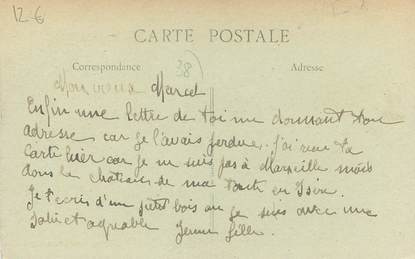 12-6
CARTE POSTALE
Correspondance
38
Adresse
Mon vieux Marcel
Enfin une lettre de toi me donnant ton
adresse car je l'avais perdue. J'ai reçu ta
carte hier car je ne suis pas à Marseille mais
dans le château de ma tante en Isère.
Je t'écris d'un petit bois où je suis avec une
jolie et agréable jeune fille.